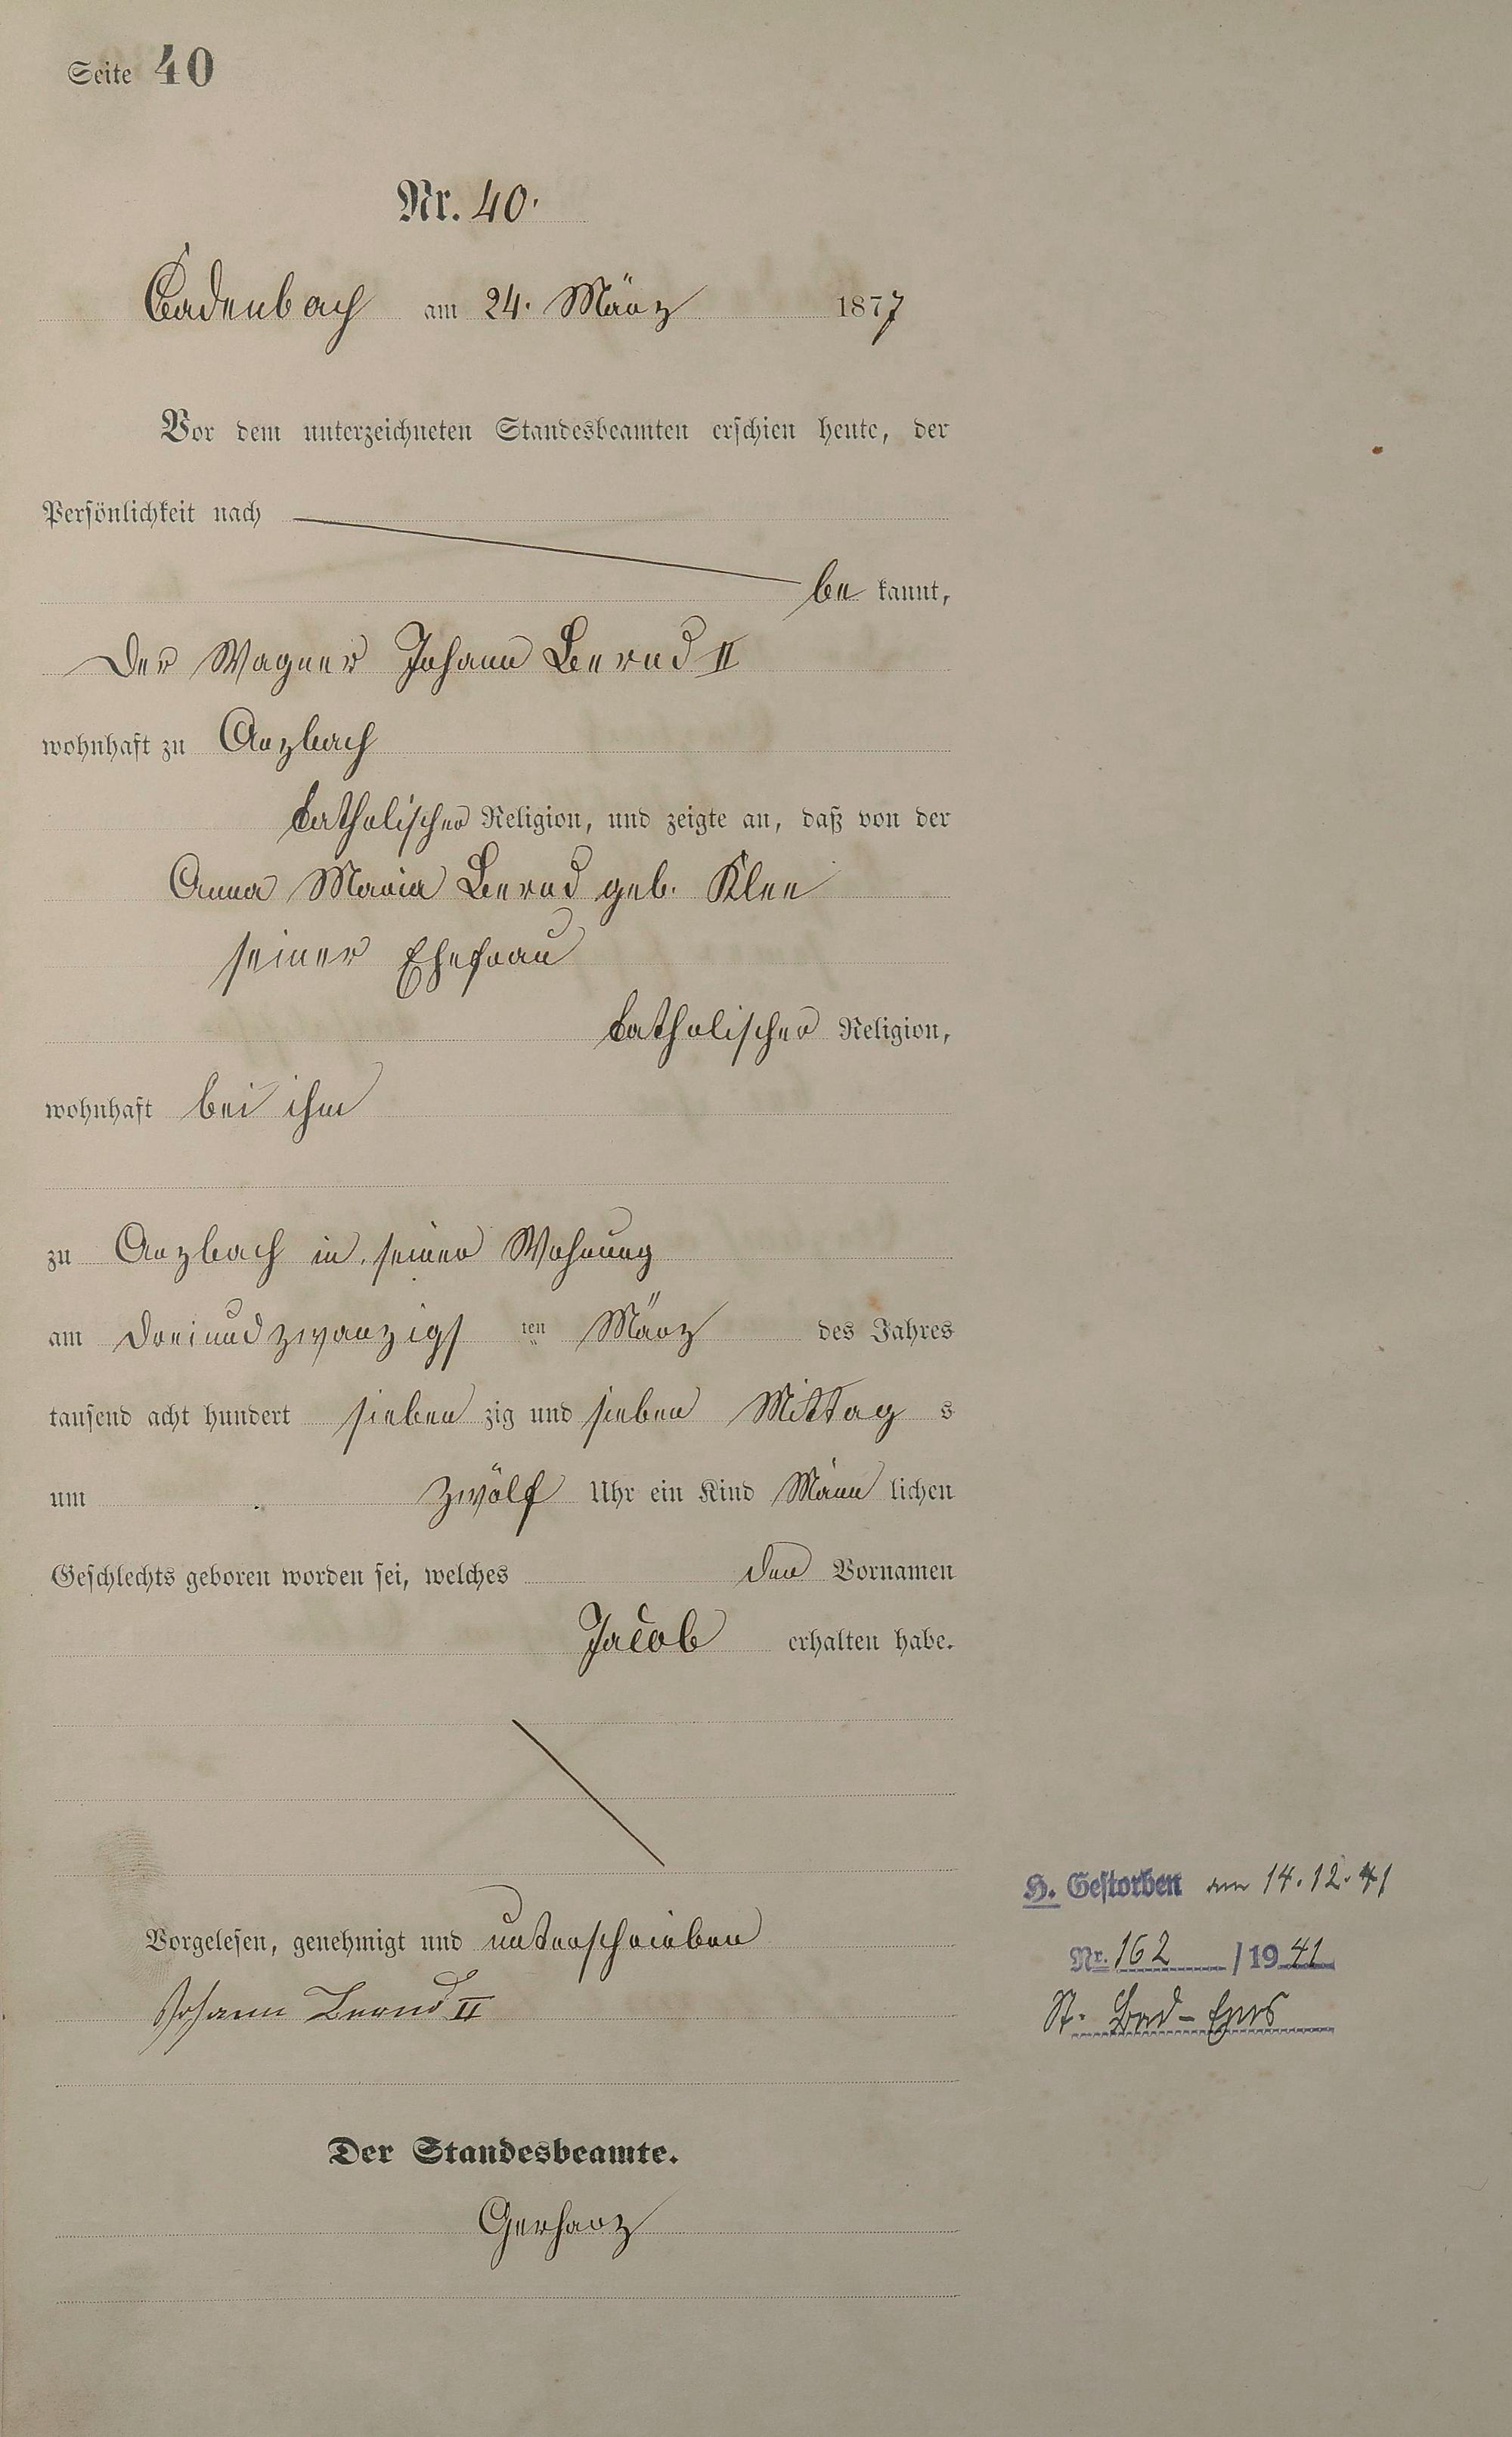 Seite 40
Nr. 40.
Cadenbach am 24. März 1877
Vor dem unterzeichneten Standesbeamten erschien heute, der
Persönlichkeit nach
be kannt,
Der Wagner Johann Bernd II
wohnhaft zu Arzbach
catholischer Religion, und zeigte an, daß von der
Anna Maria Bernd geb. Klee
seiner Ehefrau
catholischer Religion,
wohnhaft bei ihm
zu Arzbach in seiner Wohnung
am dreiundzwanzigs ten März des Jahres
tausend acht hundert sieben zig und sieben Mittag s
um zwölf Uhr ein Kind Männ lichen
Geschlechts geboren worden sei, welches den Vornamen
Jacob erhalten habe.
Vorgelesen, genehmigt und unterschrieben
Johann Bernd II
Der Standesbeamte.
Gerharz
H. Gestorben am 14.12.41
Nr. 162 / 1941
St. Bad-Ems